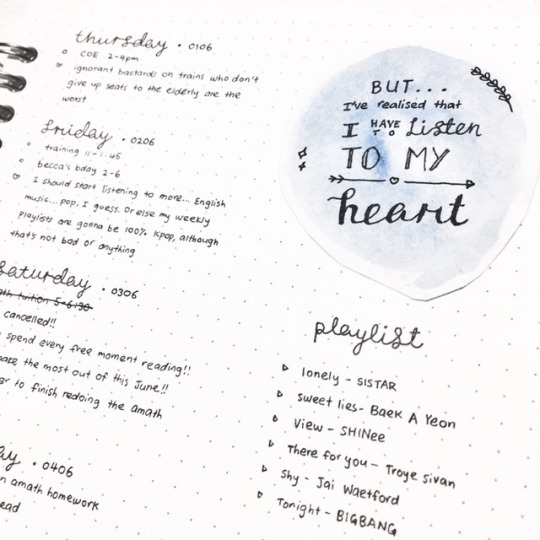 thursday • 0106
COE 2-4pm
ignorant bastards on trains who don't
give up seats to the elderly are the
worst
friday • 0206
training 11-1.45
becca's bday 2-6
I should start listening to more... English
music... pop, I guess. Or else my weekly
playlists are gonna be 100% kpop, although
that's not bad or anything
saturday • 0306
tuition 5-6:30
cancelled!!
spend every free moment reading!!
the most out of this June!!
to finish redoing the amath
• 0406
amath homework
BUT...
I've realised that
I HAVE TO Listen
TO MY
heart
playlist
lonely - SISTAR
sweet lies - Baek A Yeon
View - SHINee
There for you - Troye Sivan
Shy - Jai Waetford
Tonight - BIGBANG